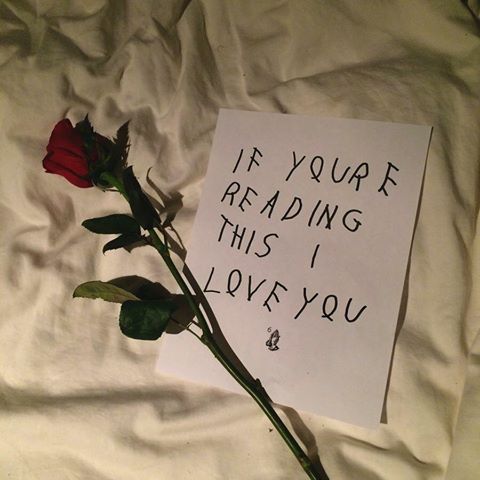 IF YOURE
READING
THIS I
LOVE YOU
6